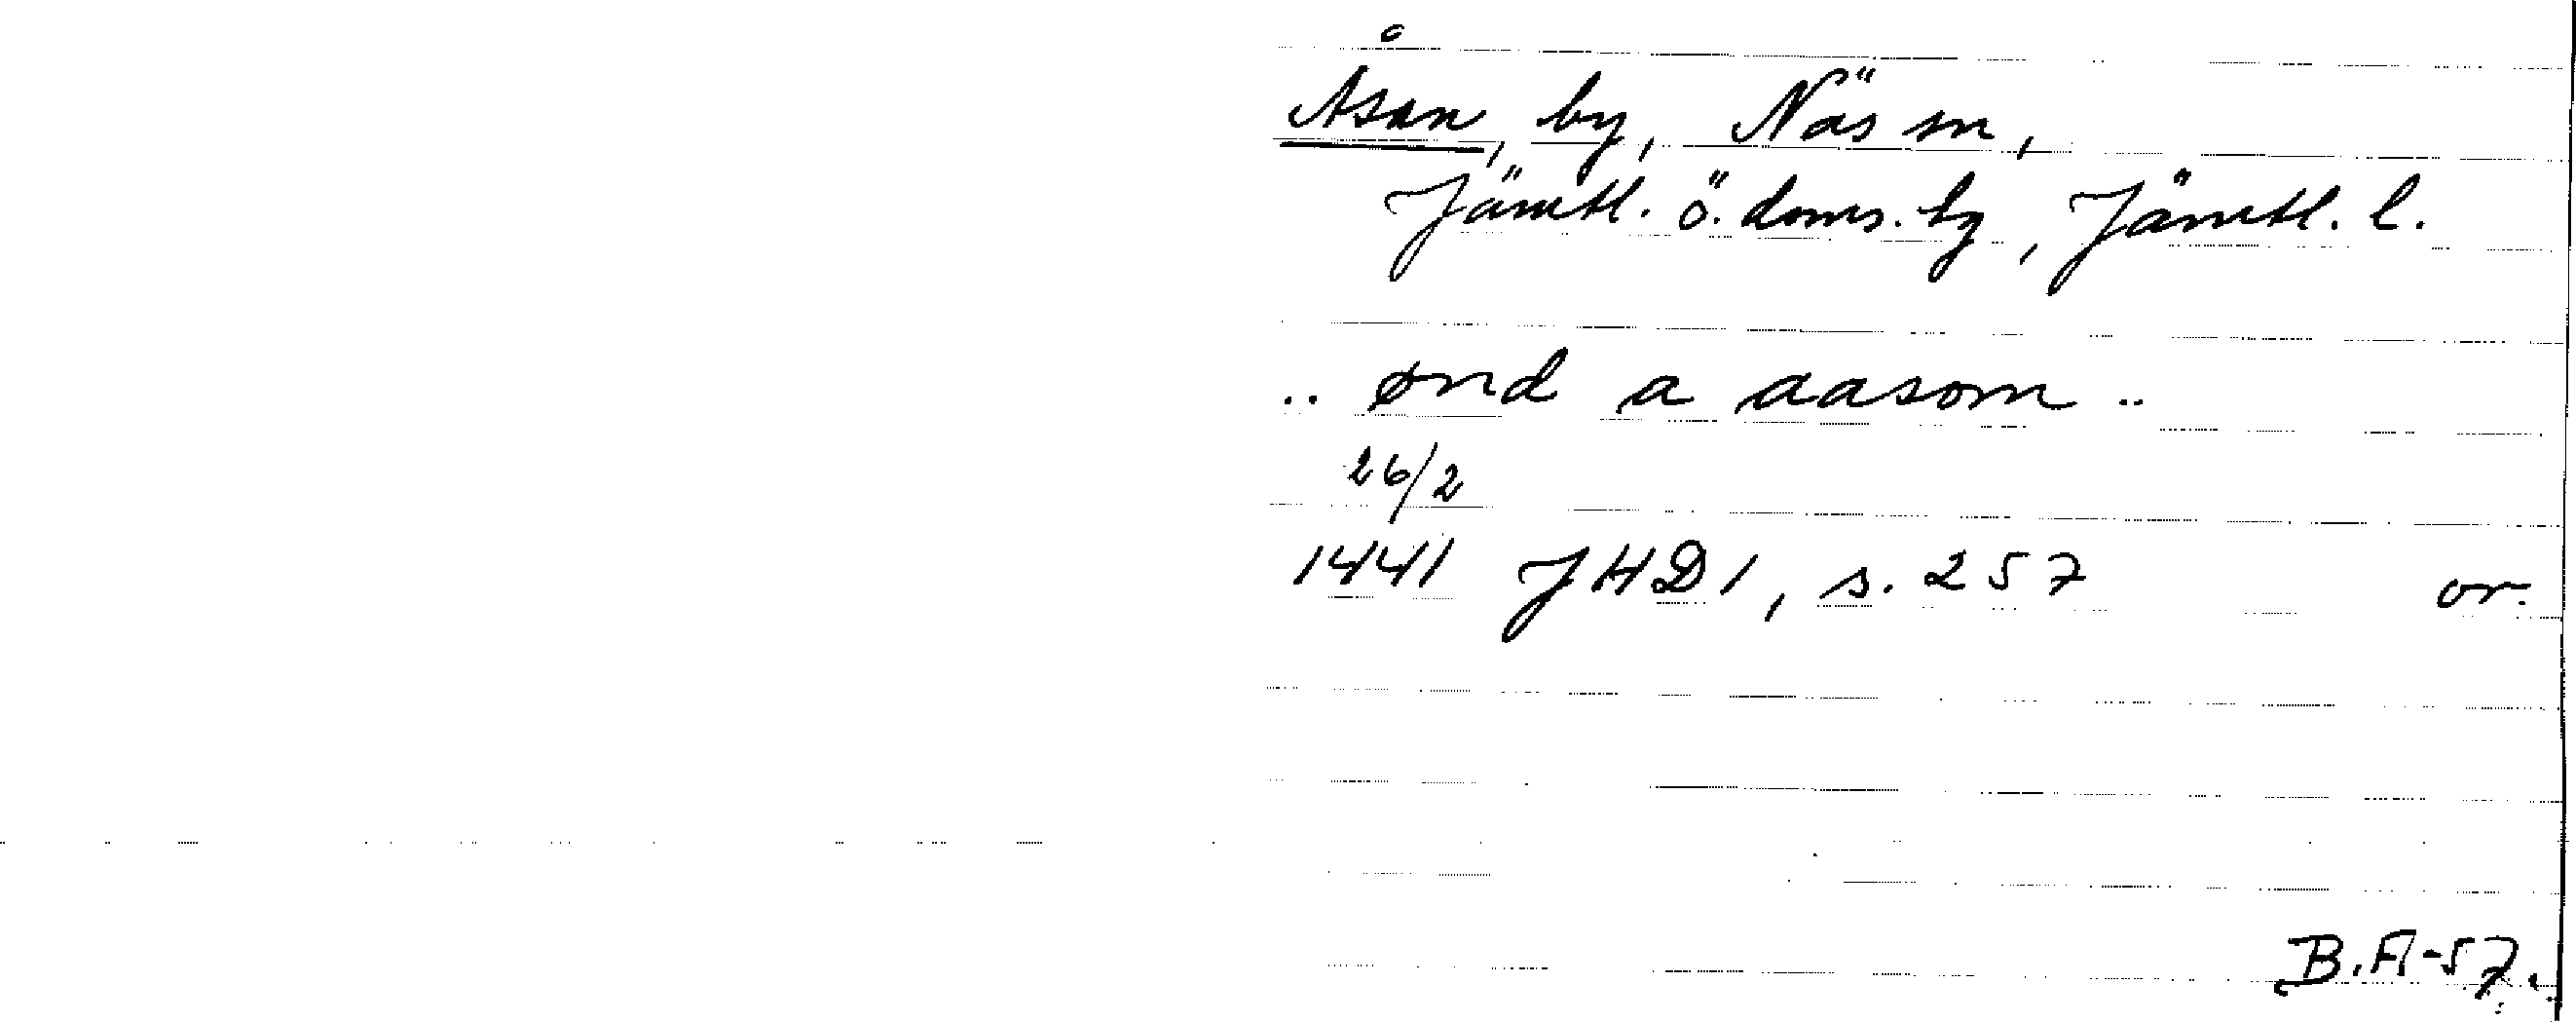 Åsan, by, Näs sn,
Jämtl. ö. doms. hg, Jämtl. l.
.. ønd a aasom ..
26/2
1441 JHD1, s. 257 or.
B.A-57.